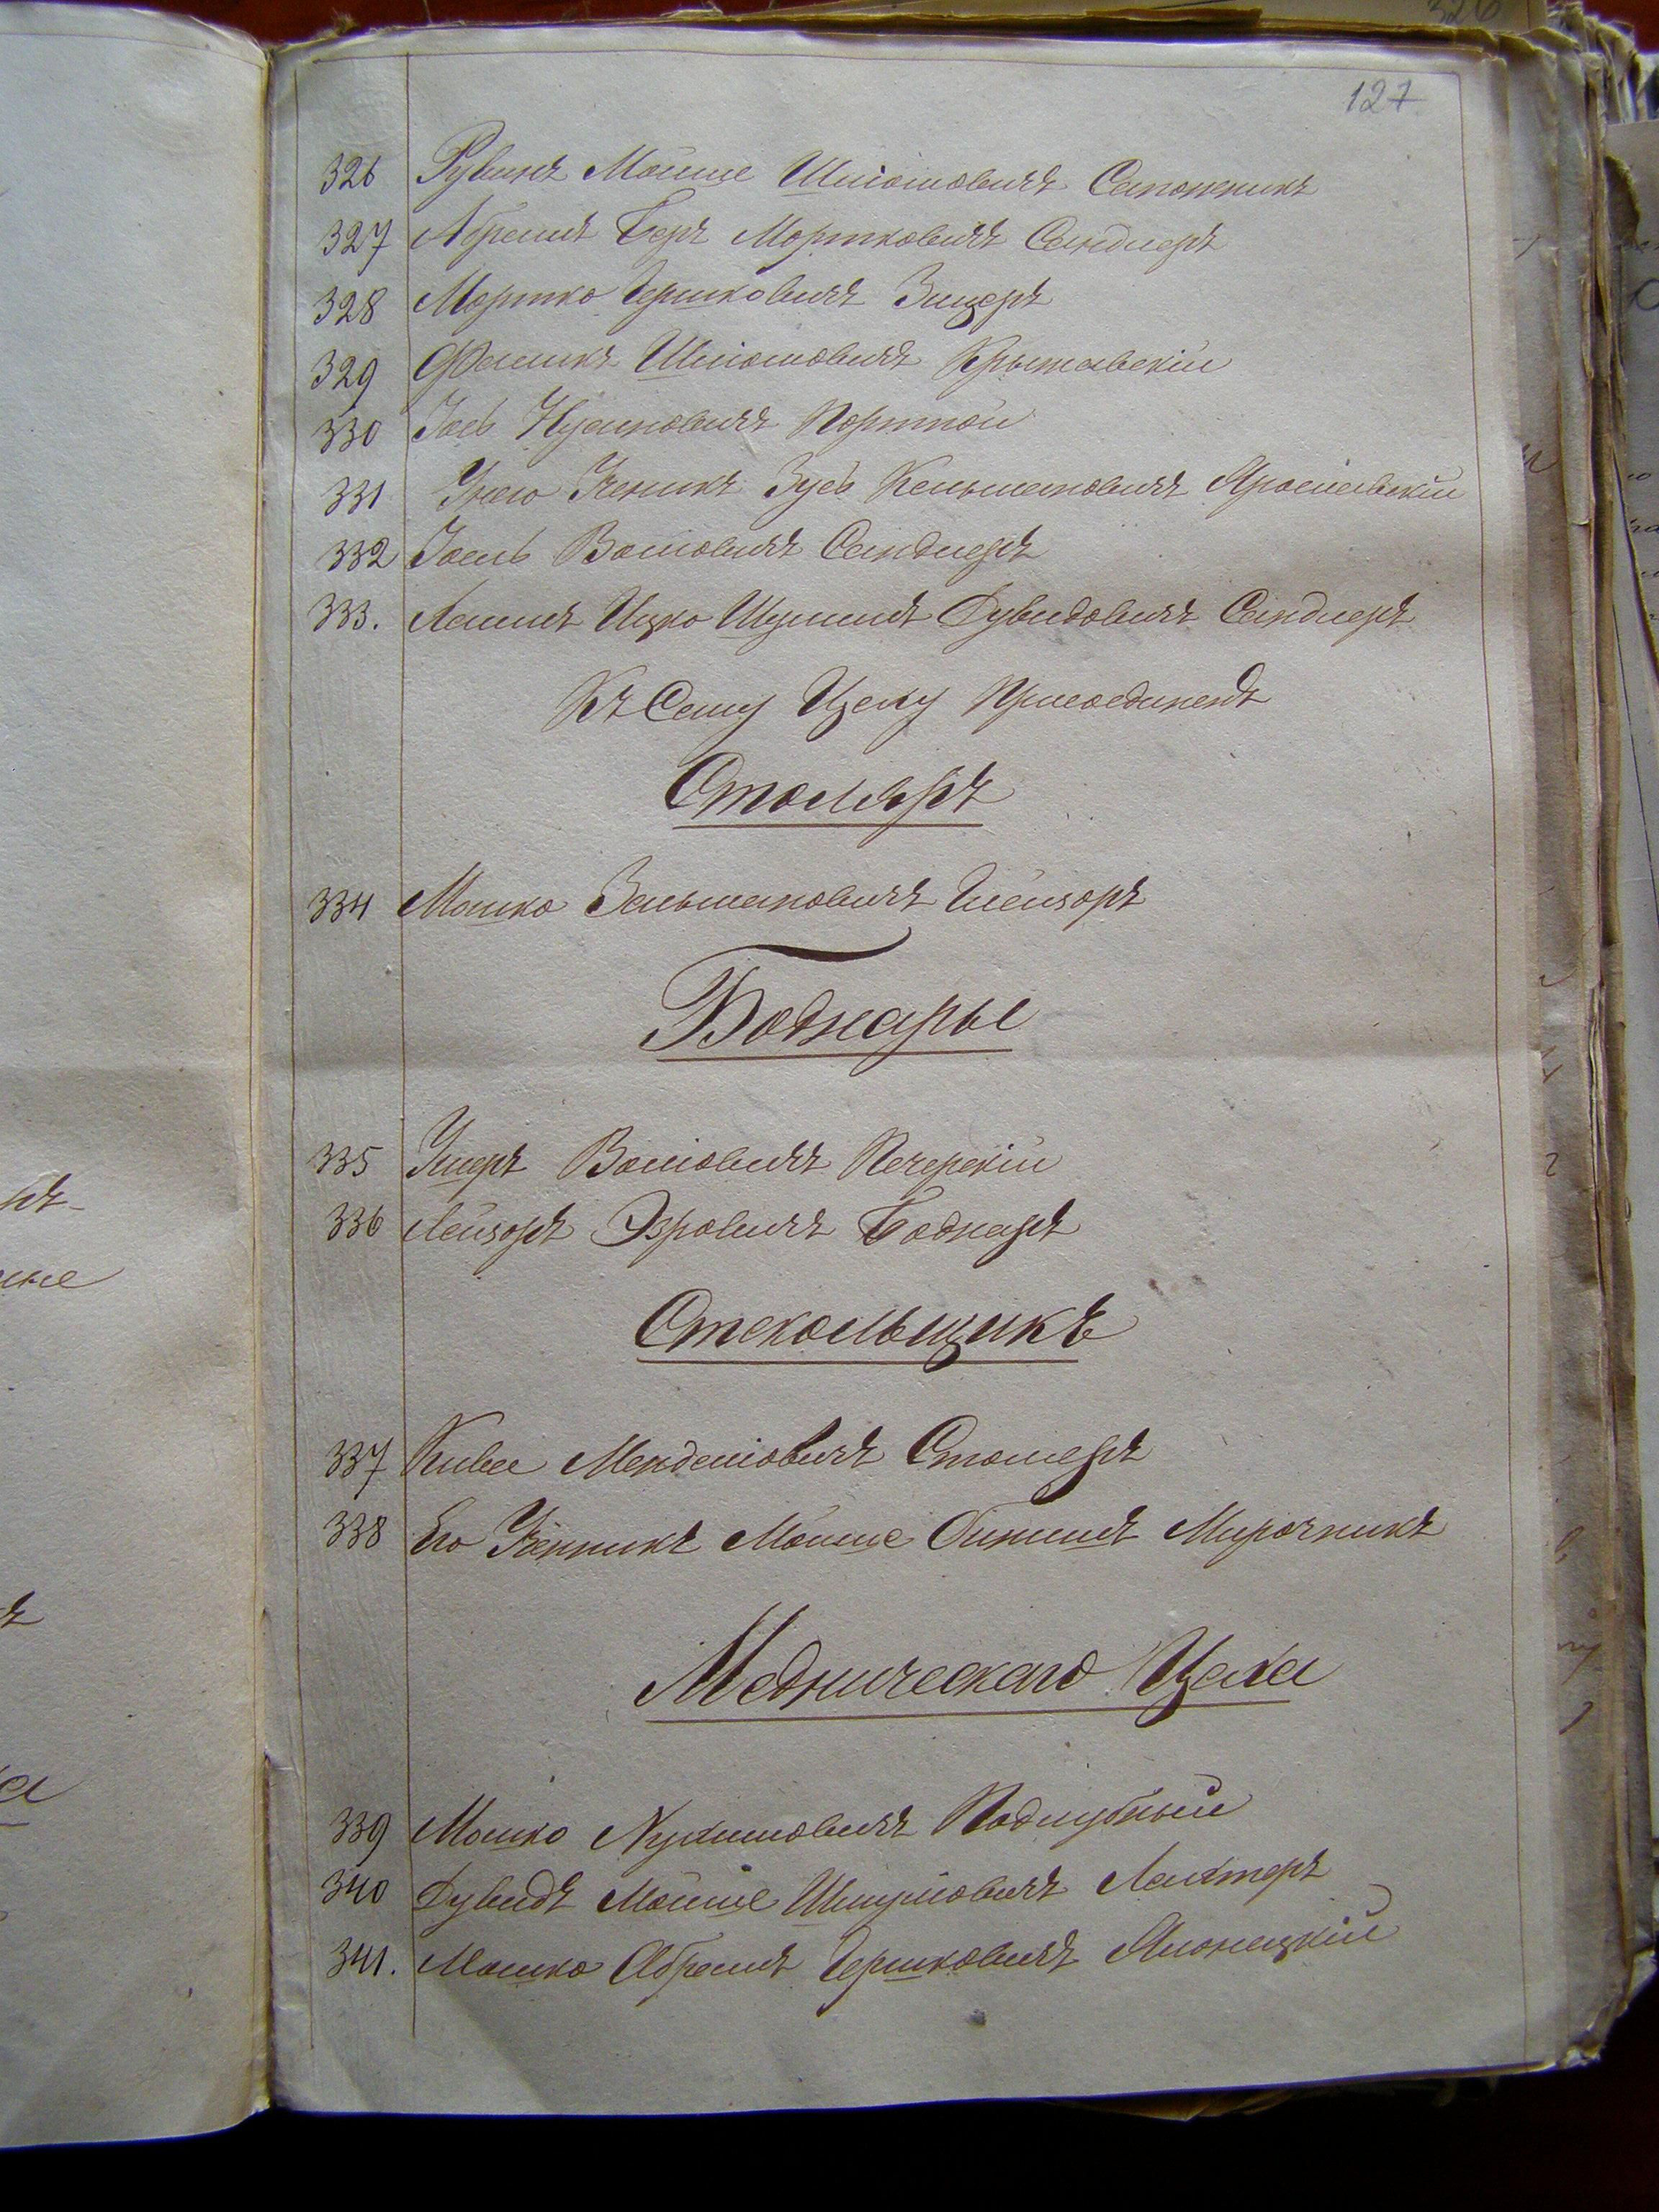 127
326 Рувинъ Мойше Шліомовичъ Сапожникъ
327 Абрамъ Беръ Мортковичъ Сандлеръ
328 Мортко Гершковичъ Зицеръ
329 Фаликъ Шліомовичъ
330 Іось Нусиновичъ Портной
331 У него Ученикъ Зусь Кельмановичъ Ярославскій
332 Іоель Вольовичъ Сандлеръ
333. Хаимъ Ицко Шулимъ Дувидовичъ Сандлеръ
Къ Сему Цеху Присоединенъ
Столяръ
334 Мошко Зельмановичъ Глейзоръ
Боднары
335 Ушеръ Вольовичъ Печерскій
336 Лейзоръ Эзровичъ Боднаръ
Стекольщикъ
337 Кива Менделіовичъ Столяръ
338 Его Ученикъ Мойше Мирочникъ
Медническаго Цеха
339 Мошко Нухимовичъ Подлубный
340 Дувидъ Мойше Шмуліовичъ Лахтеръ
341. Мошко Абрамъ Гершковичъ